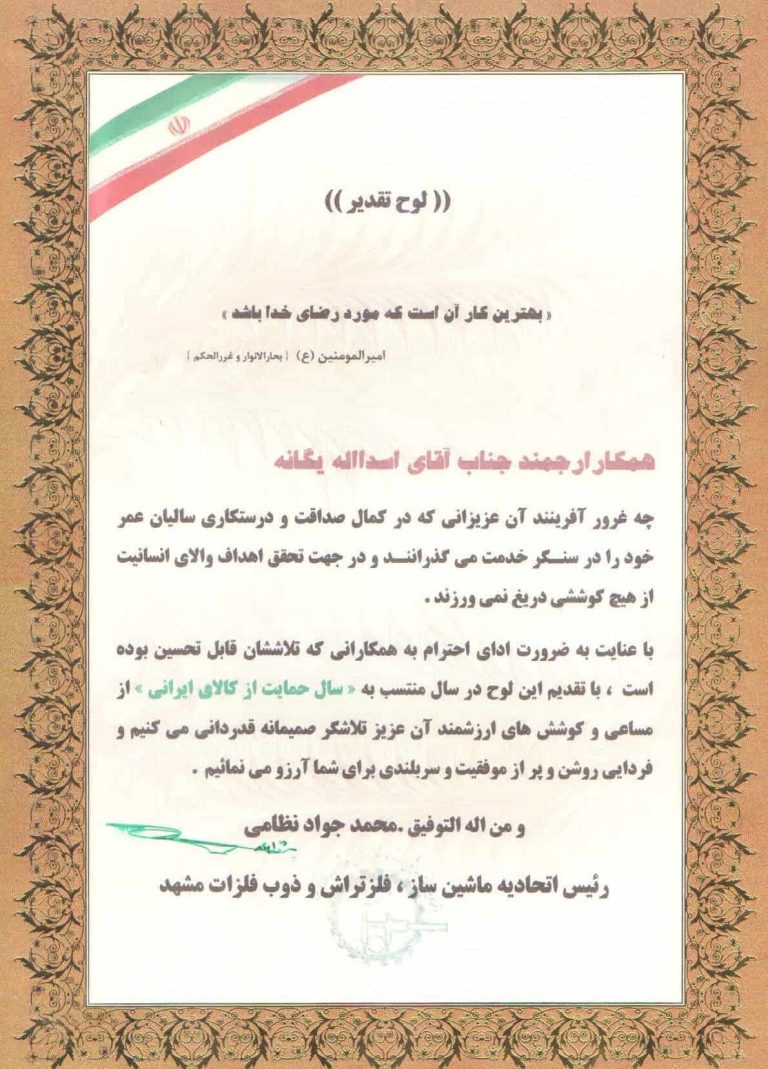 (( لوح تقدیر ))
« بهترین کار آن است که مورد رضای خدا باشد »
امیرالمومنین (ع) { بحارالانوار و غررالحکم }
همکار ارجمند جناب آقای اسدااله یگانه
چه غرور آفرینند آن عزیزانی که در کمال صداقت و درستکاری سالیان عمر
خود را در سنگر خدمت می گذرانند و در جهت تحقق اهداف والای انسانیت
از هیچ کوششی دریغ نمی ورزند .
با عنایت به ضرورت ادای احترام به همکارانی که تلاششان قابل تحسین بوده
است ، با تقدیم این لوح در سال منتسب به « سال حمایت از کالای ایرانی » از
مساعی و کوشش های ارزشمند آن عزیز تلاشگر صمیمانه قدردانی می کنیم و
فردایی روشن و پر از موفقیت و سربلندی برای شما آرزو می نمائیم .
و من اله التوفیق .محمد جواد نظامی
رئیس اتحادیه ماشین ساز ، فلزتراش و ذوب فلزات مشهد